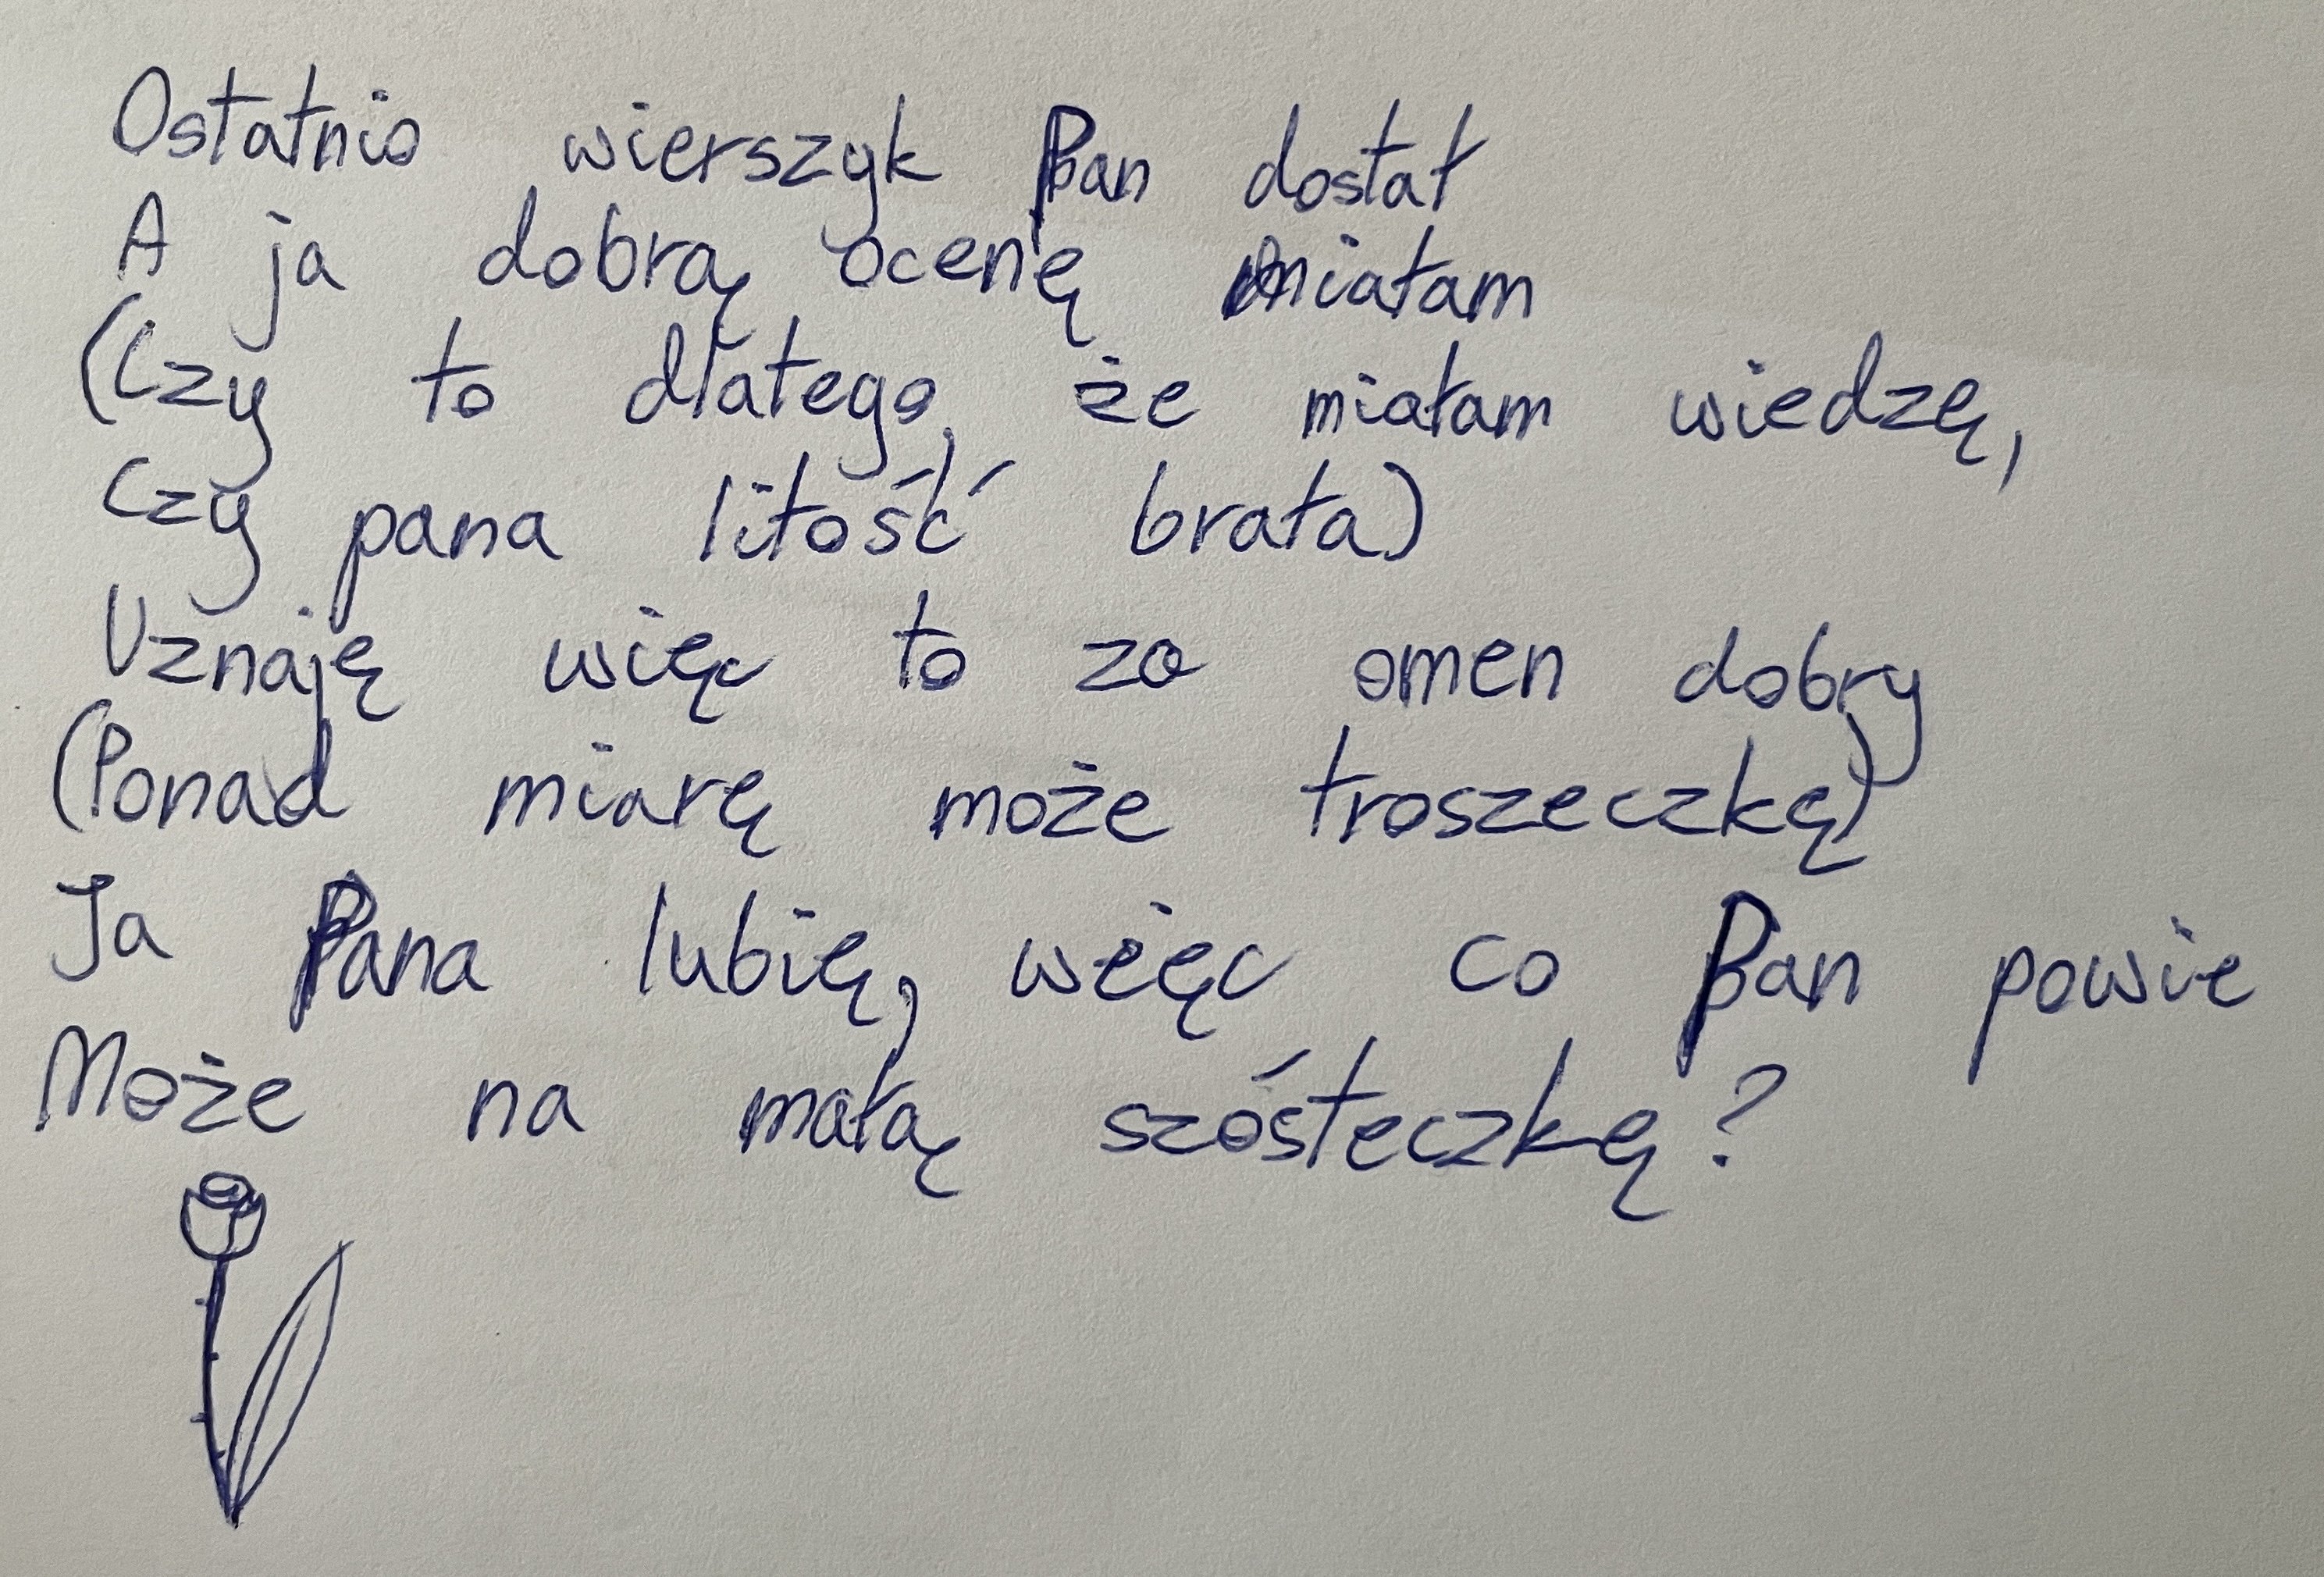 Ostatnio wierszyk Pan dostał
A ja dobrą ocenę miałam
(Czy to dlatego, że miałam wiedzę,
Czy pana litość brała)
Uznaję więc to za omen dobry
(Ponad miarę może troszeczkę)
Ja Pana lubię, więc co Pan powie
Może na małą szósteczkę?